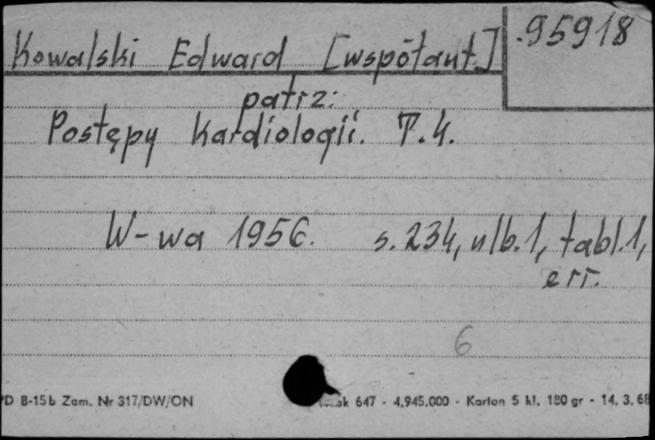 Kowalski Edward [współaut.] 95918
patrz:
Postępy Kardiologii. T.4.
W-wa 1956. s. 234, nlb.1, tabl.1,
err.
6
PD B-15b Zam. Nr 317/DW/ON 647 - 4.945.000 - Karton 5 kl. 180 gr - 14. 3. 68